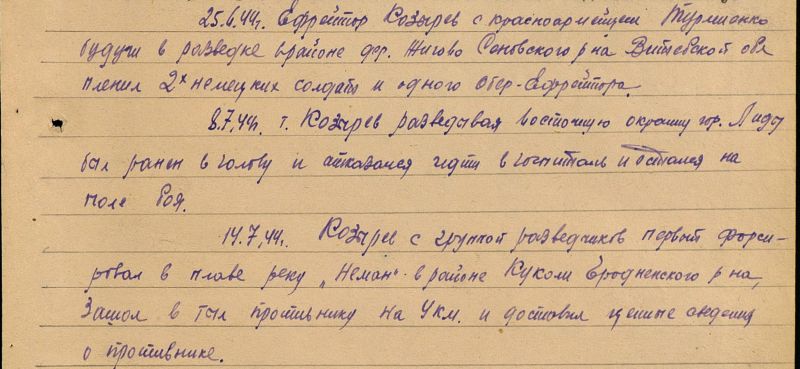 25.6.44г. Ефрейтор Козырев с красноармейцем Турмиенко
будучи в разведке в районе дер. Жигово Сеновского р на Витебской обл
пленил 2х немецких солдат и одного Обер-Ефрейтора.
8.7.44г. т. Козырев разведывая восточную окраину гор. Лида
был ранен в голову и отказался идти в госпиталь и остался на
поле боя.
14.7.44г. Козырев с группой разведчиков первый форси-
ровал в плавь реку „Неман" в районе Куколи Гродненского р на,
Зашол в тыл противнику на 4км. и доставил ценные сведения
о противнике.